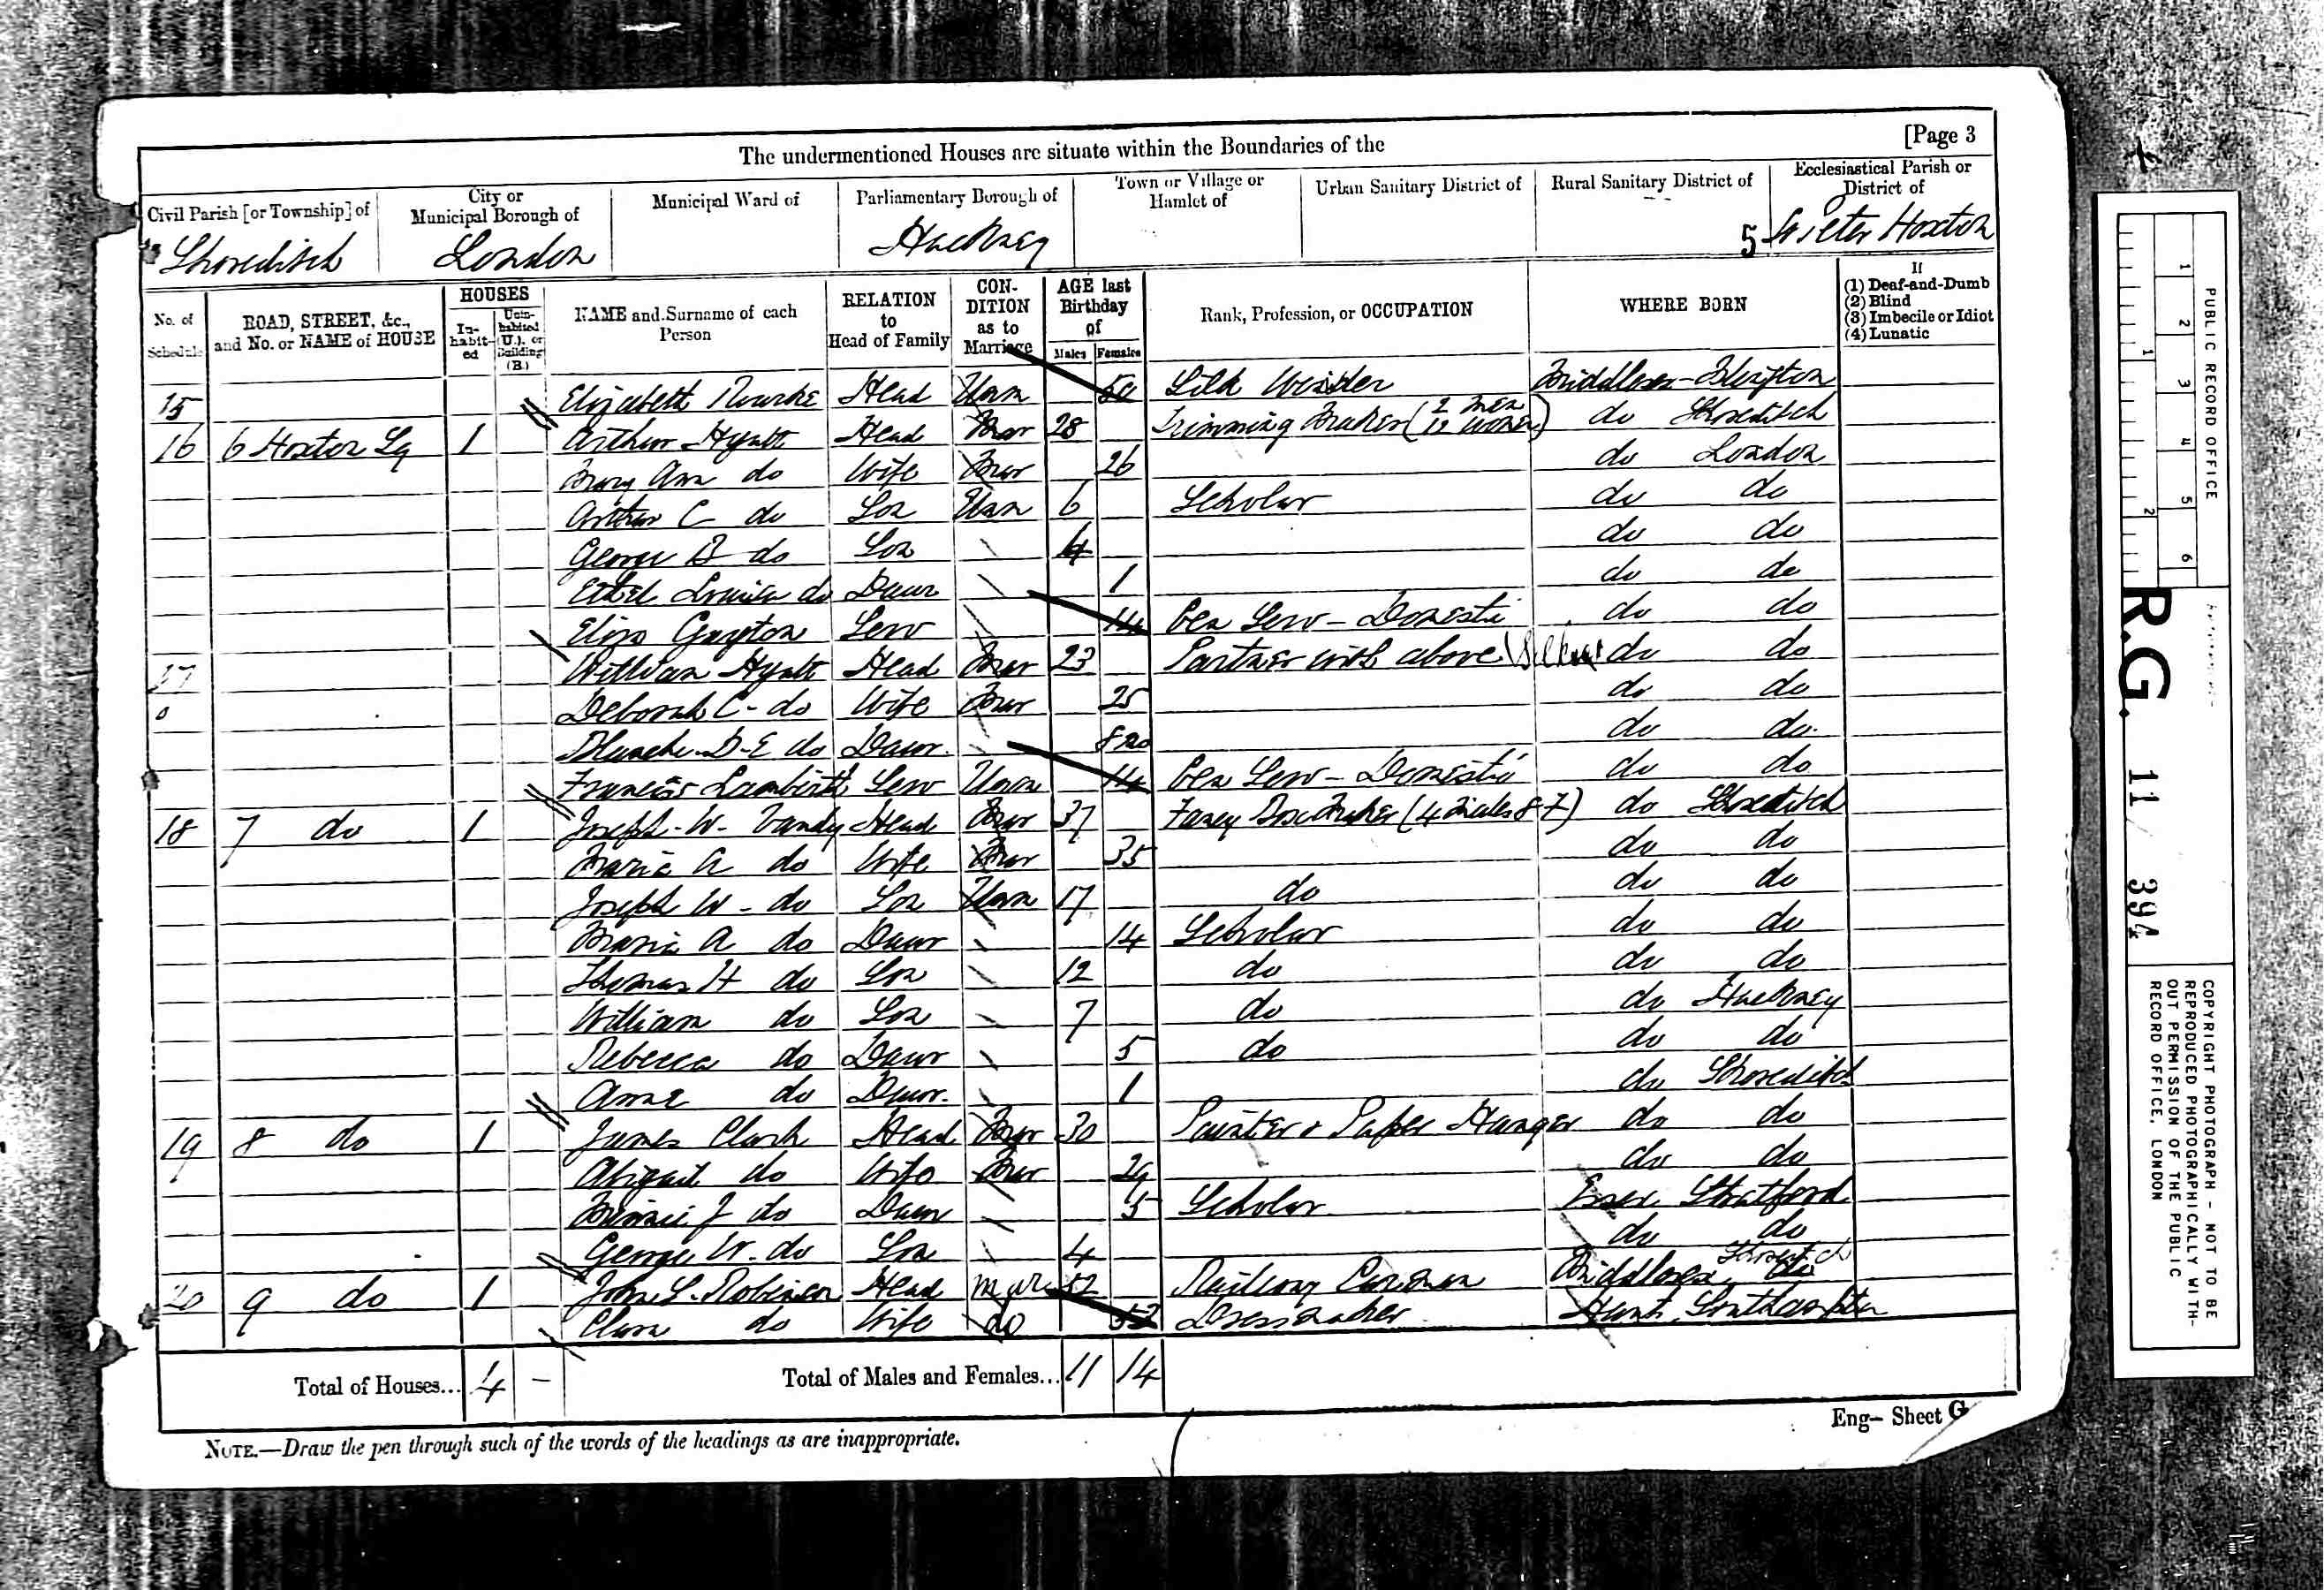 [Page 3
The undermentioned Houses are situate within the Boundaries of the
Civil Parish [or Township] of
City or Municipal Borough of
Municipal Ward of
Parliamentary Borough of
Town or Village or Hamlet of
Urban Sanitary District of
Rural Sanitary District of
Ecclesiastical Parish or District of
Shoreditch London Hackney 5 Hoxton
No. of Schedule
ROAD, STREET, &c., and No. or NAME of HOUSE
HOUSES
In-habit-ed
Unin-habited (U.), or Building (B.)
NAME and Surname of each Person
RELATION to Head of Family
CON-DITION as to Marriage
AGE last Birthday of
Males Females
Rank, Profession, or OCCUPATION
WHERE BORN
If
(1) Deaf-and-Dumb
(2) Blind
(3) Imbecile or Idiot
(4) Lunatic
15 Elizabeth Head Unm Silk Winder Middlesex - Islington
16 6 Hoxton Sq 1 Arthur Hyatt Head Mar 28 Trimming Maker (2 men 12 women) do Shoreditch
Mary Ann do Wife Mar 26 do London
Arthur C do Son Unm 6 Scholar do do
George B do Son 4 do do
Ethel Louisa do Daur 1 do do
Eliza Gayton Serv 14 Gen Serv - Domestic do do
17 William Hyatt Head Mar 23 Partner with above do do
Deborah C do Wife Mar 25 do do
Blanche D. E do Daur 8 mo do do
Frances Lambirth Serv Unm 14 Gen Serv - Domestic do do
18 7 do 1 Joseph W. Vandy Head Mar 37 Fancy Box Maker (4 Males 8 F) do Shoreditch
Maria A do Wife Mar 35 do do
Joseph W do Son Unm 17 do do do
Maria A do Daur 14 Scholar do do
Thomas H do Son 12 do do do
William do Son 7 do do Hackney
Rebecca do Daur 5 do do do
Anne do Daur 1 do Shoreditch
19 8 do 1 James Clark Head Mar 30 Painter & Paper Hanger do do
Abigail do Wife Mar 29 do do
Minnie J do Daur 5 Scholar Essex Stratford
George W. do Son 4 do do
20 9 do 1 John S. Robinson Head mar 52 Railway Carman Middlesex Shoreditch
Clara do Wife do 53 Dressmaker Hants Southampton
Total of Houses... 4 –
Total of Males and Females... 11 14
NOTE.—Draw the pen through such of the words of the headings as are inappropriate.
Eng– Sheet G
PUBLIC RECORD OFFICE
1 2 3 4 5 6
1 2
R.G. 11 / 394
COPYRIGHT PHOTOGRAPH - NOT TO BE
REPRODUCED PHOTOGRAPHICALLY WITH-
OUT PERMISSION OF THE PUBLIC
RECORD OFFICE, LONDON